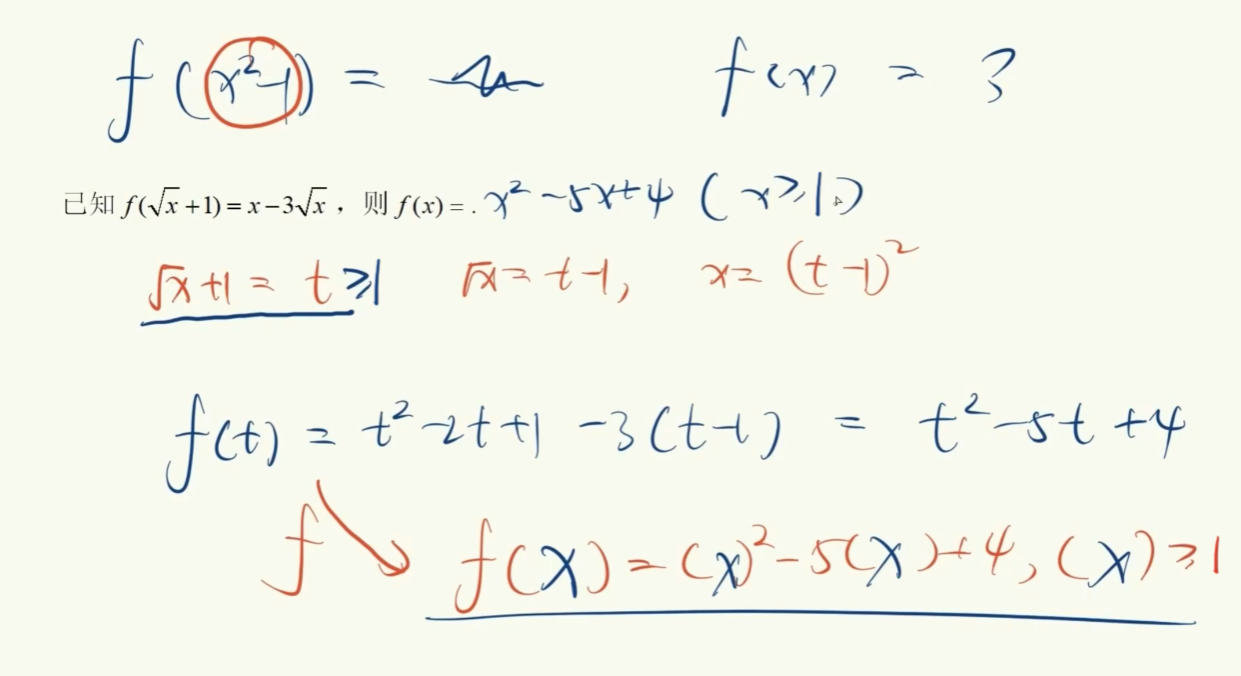 f(x²-1) = f(x) = 3
已知 f(√x+1)=x-3√x，则 f(x)=. x²-5x+4 (x≥1)
√x+1 = t≥1 √x=t-1, x=(t-1)²
f(t) = t²-2t+1 -3(t-1) = t²-5t+4
f f(x)=(x)²-5(x)+4, (x)≥1